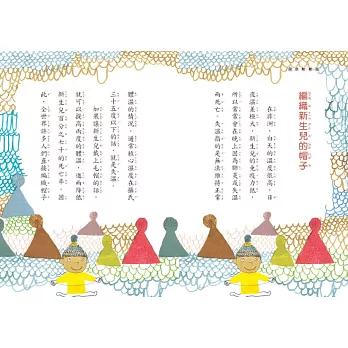 編織新生兒的帽子
在非洲，白天的溫度很高，日
夜溫差極大，新生兒的免疫力低，
所以常常會在晚上因為肺炎或失溫
而死亡。失溫指的是無法維持正常
體溫的情況，通常核心溫度在攝氏
三十五度以下的話，就是失溫。
如果讓新生兒戴上毛帽的話，
就可以提高兩度的體溫，進而降低
新生兒百分之七十的死亡率。因
此，全世界許多人們直接編織帽子